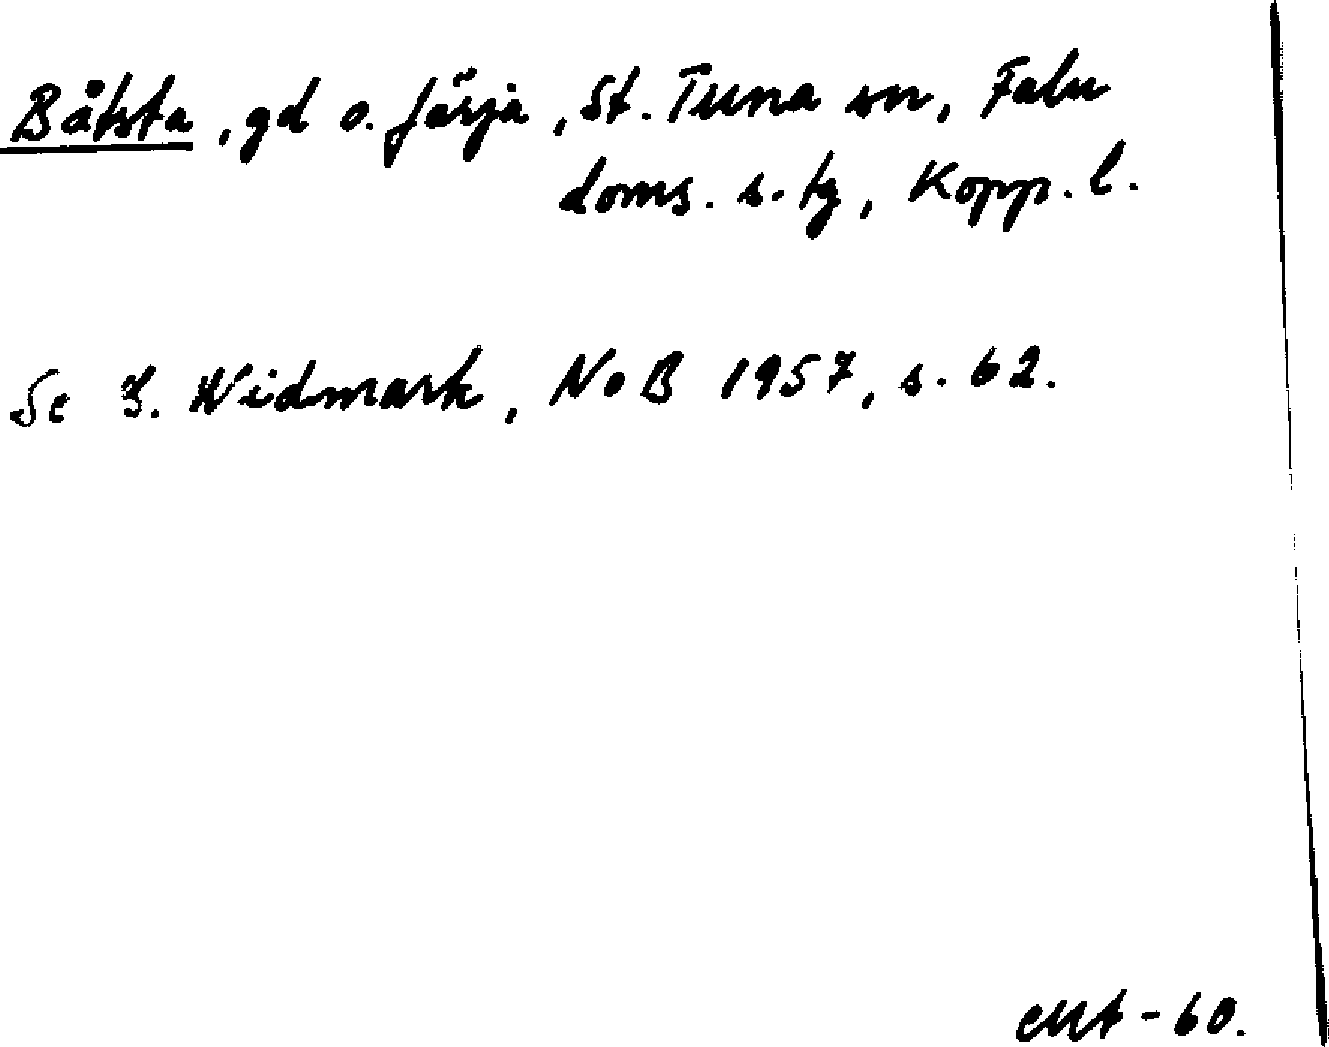 Båtsta, gd o. färja, St. Tuna sn, Falu
doms. s. tg, Kopp. l.
Se G. Widmark, NoB 1957, s. 62.
-60.